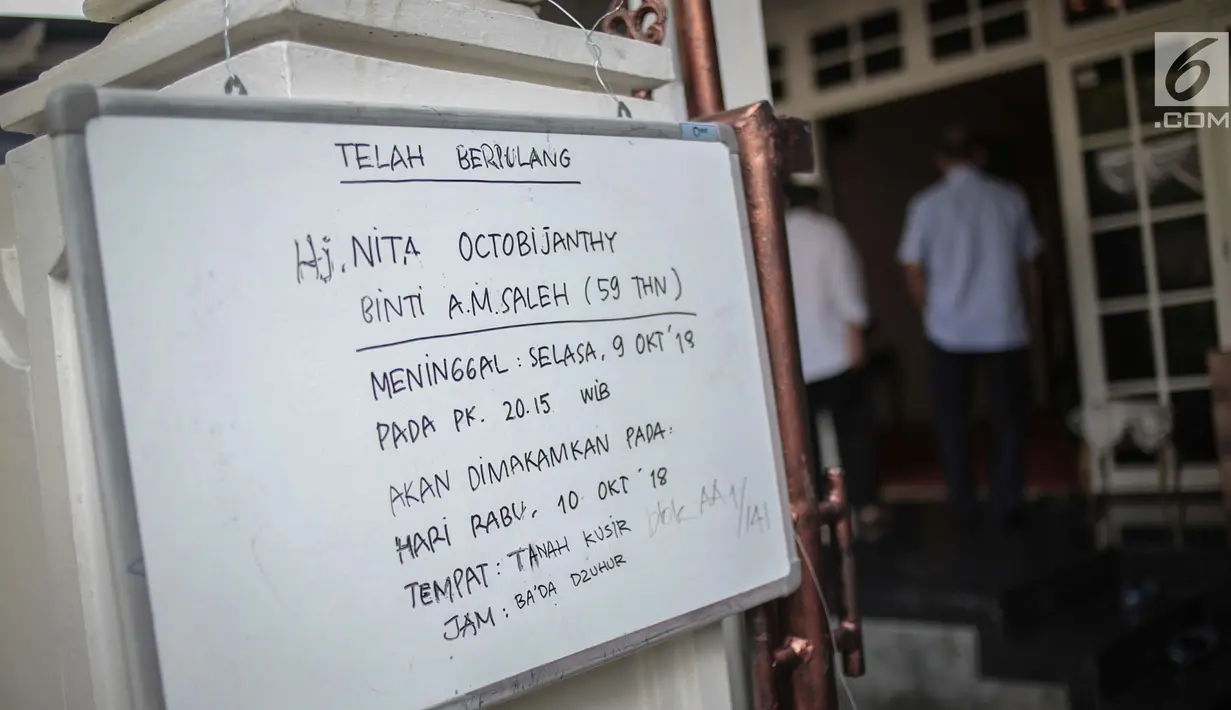 TELAH BERPULANG
Hj. NITA OCTOBIJANTHY
BINTI A.M. SALEH (59 THN)
MENINGGAL : SELASA, 9 OKT '18
PADA PK. 20.15 WIB
AKAN DIMAKAMKAN PADA:
HARI RABU, 10 OKT '18
TEMPAT : TANAH KUSIR blok AA1/141
JAM : BA'DA DZUHUR
6
.COM